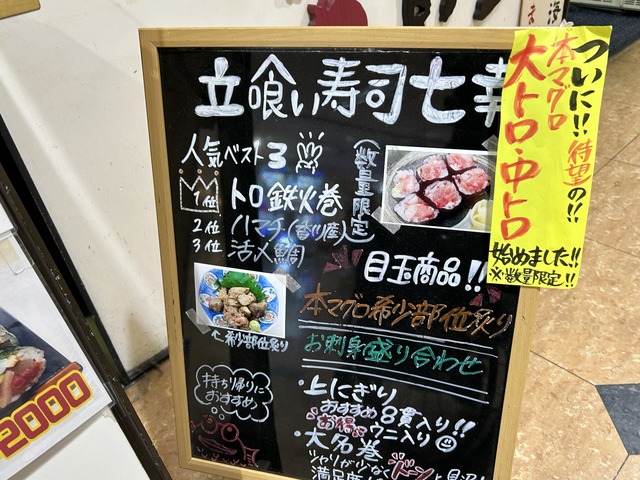 立喰い寿司七幸
人気ベスト3
(数量限定)
1位 トロ鉄火巻
2位 ハマチ(香川産)
3位 活〆鯛
目玉商品!!
本マグロ希少部位炙り
お刺身盛り合わせ
←希少部位炙り
持ち帰りに
おすすめ
・上にぎり
おすすめ 8貫入り!!
お得 ウニ入り
・大名巻
シャリが少なく ドーンと具沢
満足度
ついに!! 待望の!!
本マグロ
大トロ・中トロ
始めました!!
※数量限定!!
2000